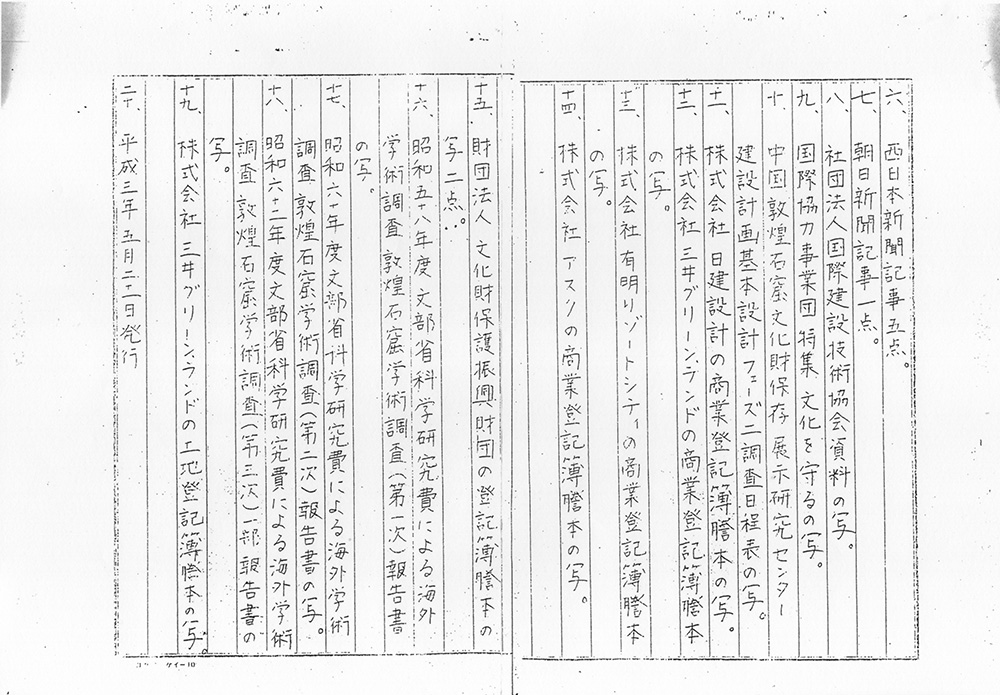 六、西日本新聞記事五点。
七、朝日新聞記事一点。
八、社団法人国際建設技術協会資料の写。
九、国際協力事業団特集、文化を守るの写。
十、中国敦煌石窟文化財保存展示研究センター
建設計画基本設計フェーズ二調査日程表の写。
十一、株式会社日建設計の商業登記簿謄本の写。
十二、株式会社三井グリーンランドの商業登記簿謄本
の写。
十三、株式会社有明リゾートシティの商業登記簿謄本
の写。
十四、株式会社アスクの商業登記簿謄本の写。
十五、財団法人文化財保護振興財団の登記簿謄本の
写二点。
十六、昭和五十八年度文部省科学研究費による海外
学術調査敦煌石窟学術調査(第一次)報告書
の写。
十七、昭和六十年度文部省科学研究費による海外学術
調査敦煌石窟学術調査(第二次)報告書の写。
十八、昭和六十二年度文部省科学研究費による海外学術
調査敦煌石窟学術調査(第三次)一部報告書の
写。
十九、株式会社三井グリーンランドの土地登記簿謄本の写。
二十、平成三年五月二十二日発行